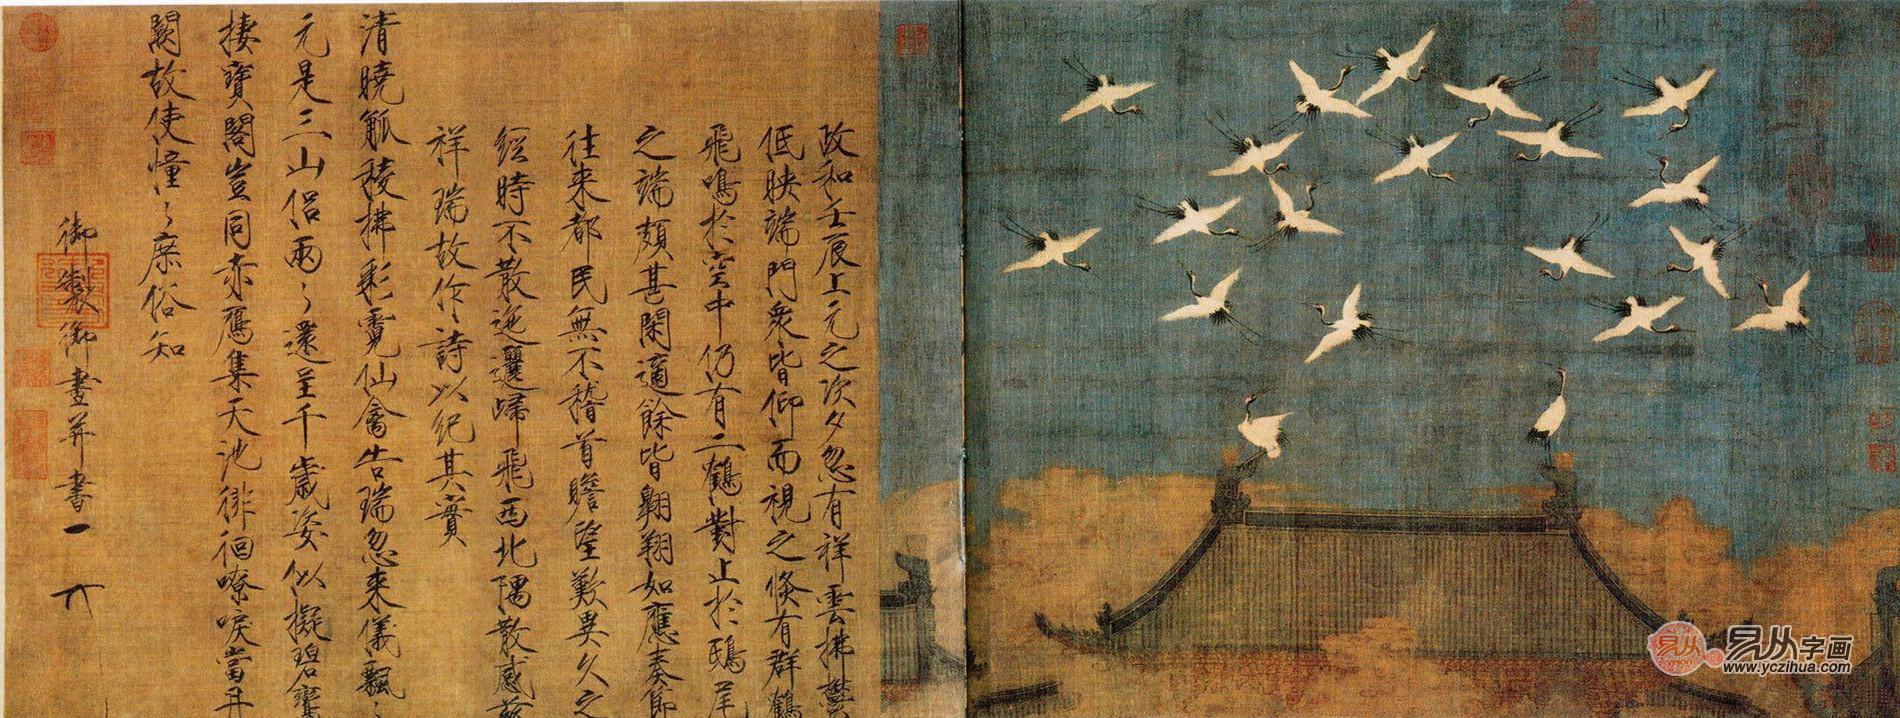 政和壬辰上元之次夕忽有祥雲拂鬱
低映端門衆皆仰而視之倏有群鶴
飛鳴於空中仍有二鶴對止於鴟尾
之端頗甚閑適餘皆翱翔如應奏節
往來都民無不稽首瞻望歎異久之
經時不散迤邐歸飛西北隅散感茲
祥瑞故作詩以紀其實
清曉觚稜拂彩霓仙禽告瑞忽來儀飄〻
元是三山侶兩〻還呈千歲姿似擬碧鸞
棲寶閣豈同赤鴈集天池徘徊嘹唳當丹
闕故使憧〻庶俗知
御製御畫并書
易从字画
www.yczihua.com